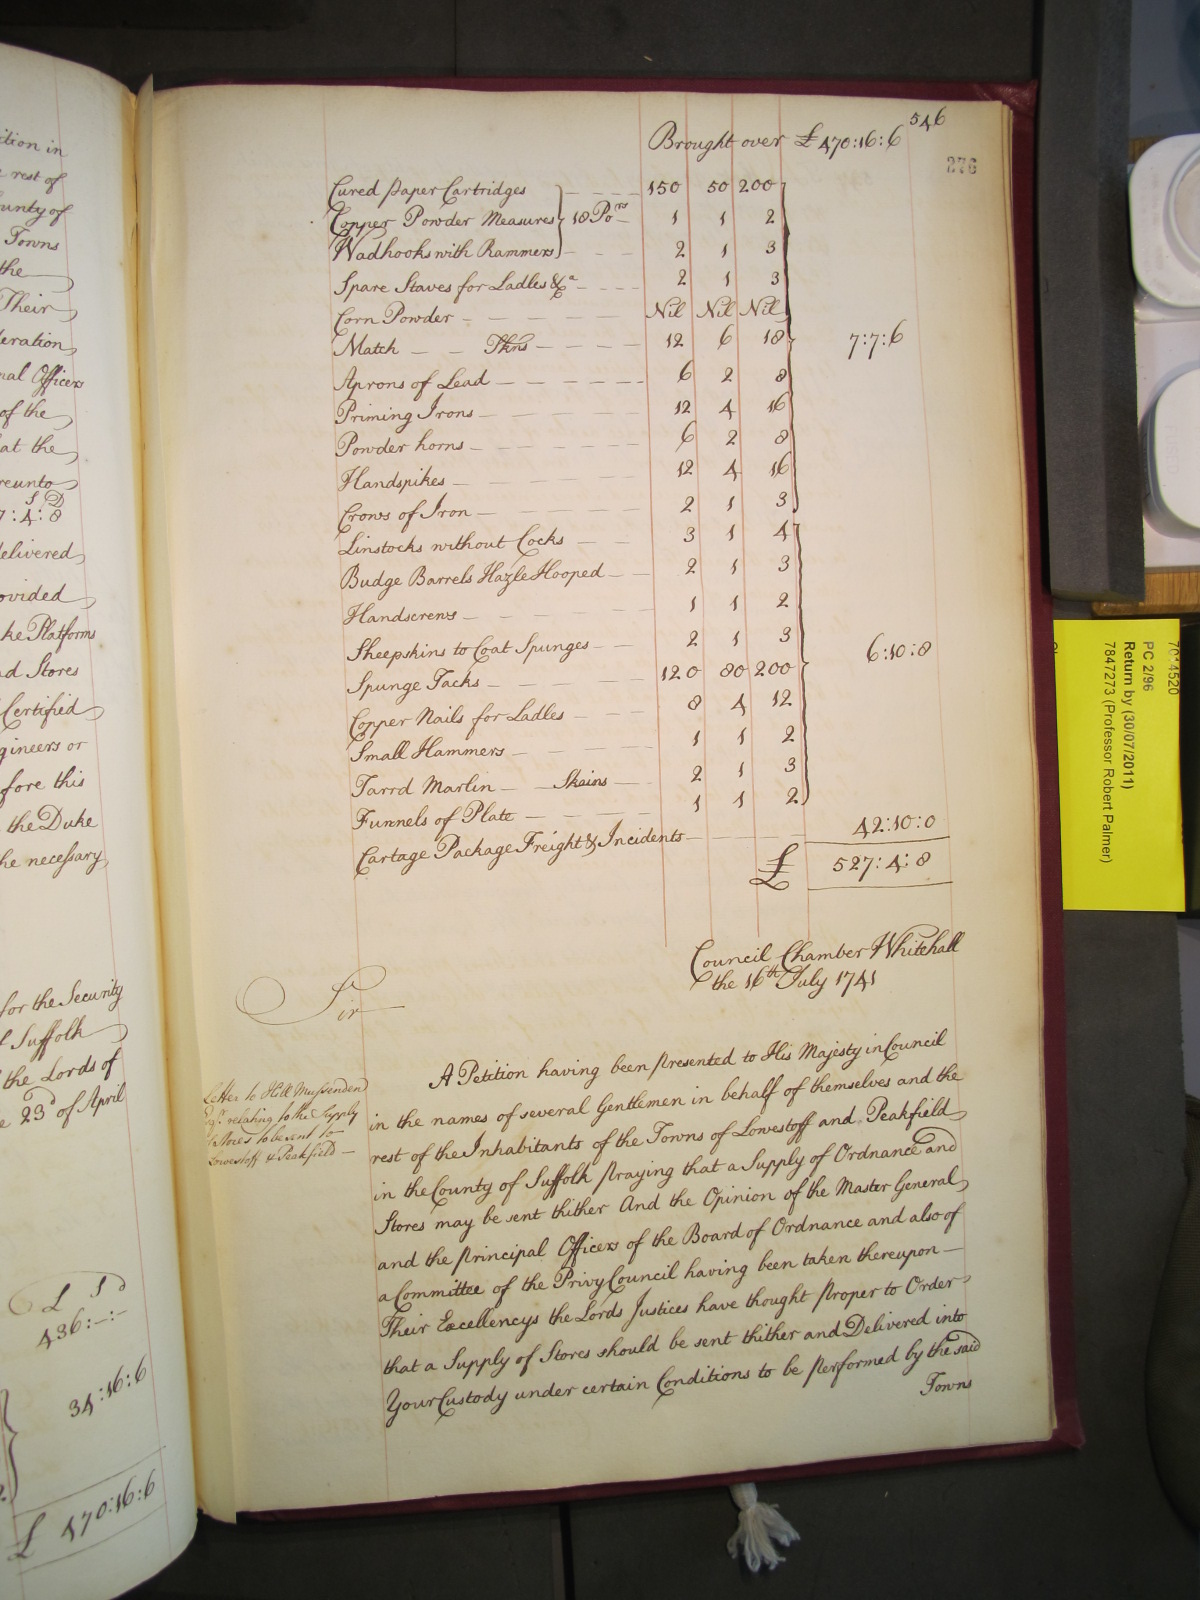 ition in
rest of
unty of
Towns
the
Their
eration
nal Officers
of the
at the
reunto
S D
7:4:8
delivered
ovided
ke Platforms
nd Stores
Certified
gineers or
fore this
the Duke
he necessary
for the Security
Suffolk
the Lords of
23d of April
L S D
436:-:-
34:16:6
£ 470:16:6
546
276
Brought over £470:16:6
Cured paper Cartridges 150 50 200
Copper Powder Measures 18 Pors 1 1 2
Wadhooks with Rammers 2 1 3
Spare Staves for Ladles &ca 2 1 3
Corn Powder Nil Nil Nil
Match Skns 12 6 18 7:7:6
Aprons of Lead 6 2 8
Priming Irons 12 4 16
Powder horns 6 2 8
Handspikes 12 4 16
Crows of Iron 2 1 3
Linstocks without Cocks 3 1 4
Budge Barrels Hazle Hooped 2 1 3
Handscrews 1 1 2
Sheepskins to Coat Spunges 2 1 3 6:10:8
Spunge Tacks 120 80 200
Copper Nails for Ladles 8 4 12
Small Hammers 1 1 2
Tarrd Marlin Skains 2 1 3
Funnels of Plate 1 1 2
Cartage Package Freight & Incidents 42:10:0
£ 527:4:8
Council Chamber Whitehall
the 16th July 1741
Sir
A Petition having been presented to His Majesty in Council
in the names of several Gentlemen in behalf of themselves and the
rest of the Inhabitants of the Towns of Lowestoff and Peakfield
in the County of Suffolk praying that a Supply of Ordnance and
Stores may be sent thither And the Opinion of the Master General
and the principal Officers of the Board of Ordnance and also of
a Committee of the Privy Council having been taken thereupon
Their Excellencys the Lords Justices have thought proper to Order
that a Supply of Stores should be sent thither and Delivered into
Your Custody under certain Conditions to be performed by the said
Towns
Letter to Hill Mussenden
Esqr. relating to the Supply
Stores to be sent to
Lowestoff & Peakfield
7014520
PC 2/96
Return by (30/07/2011)
7847273 (Professor Robert Palmer)